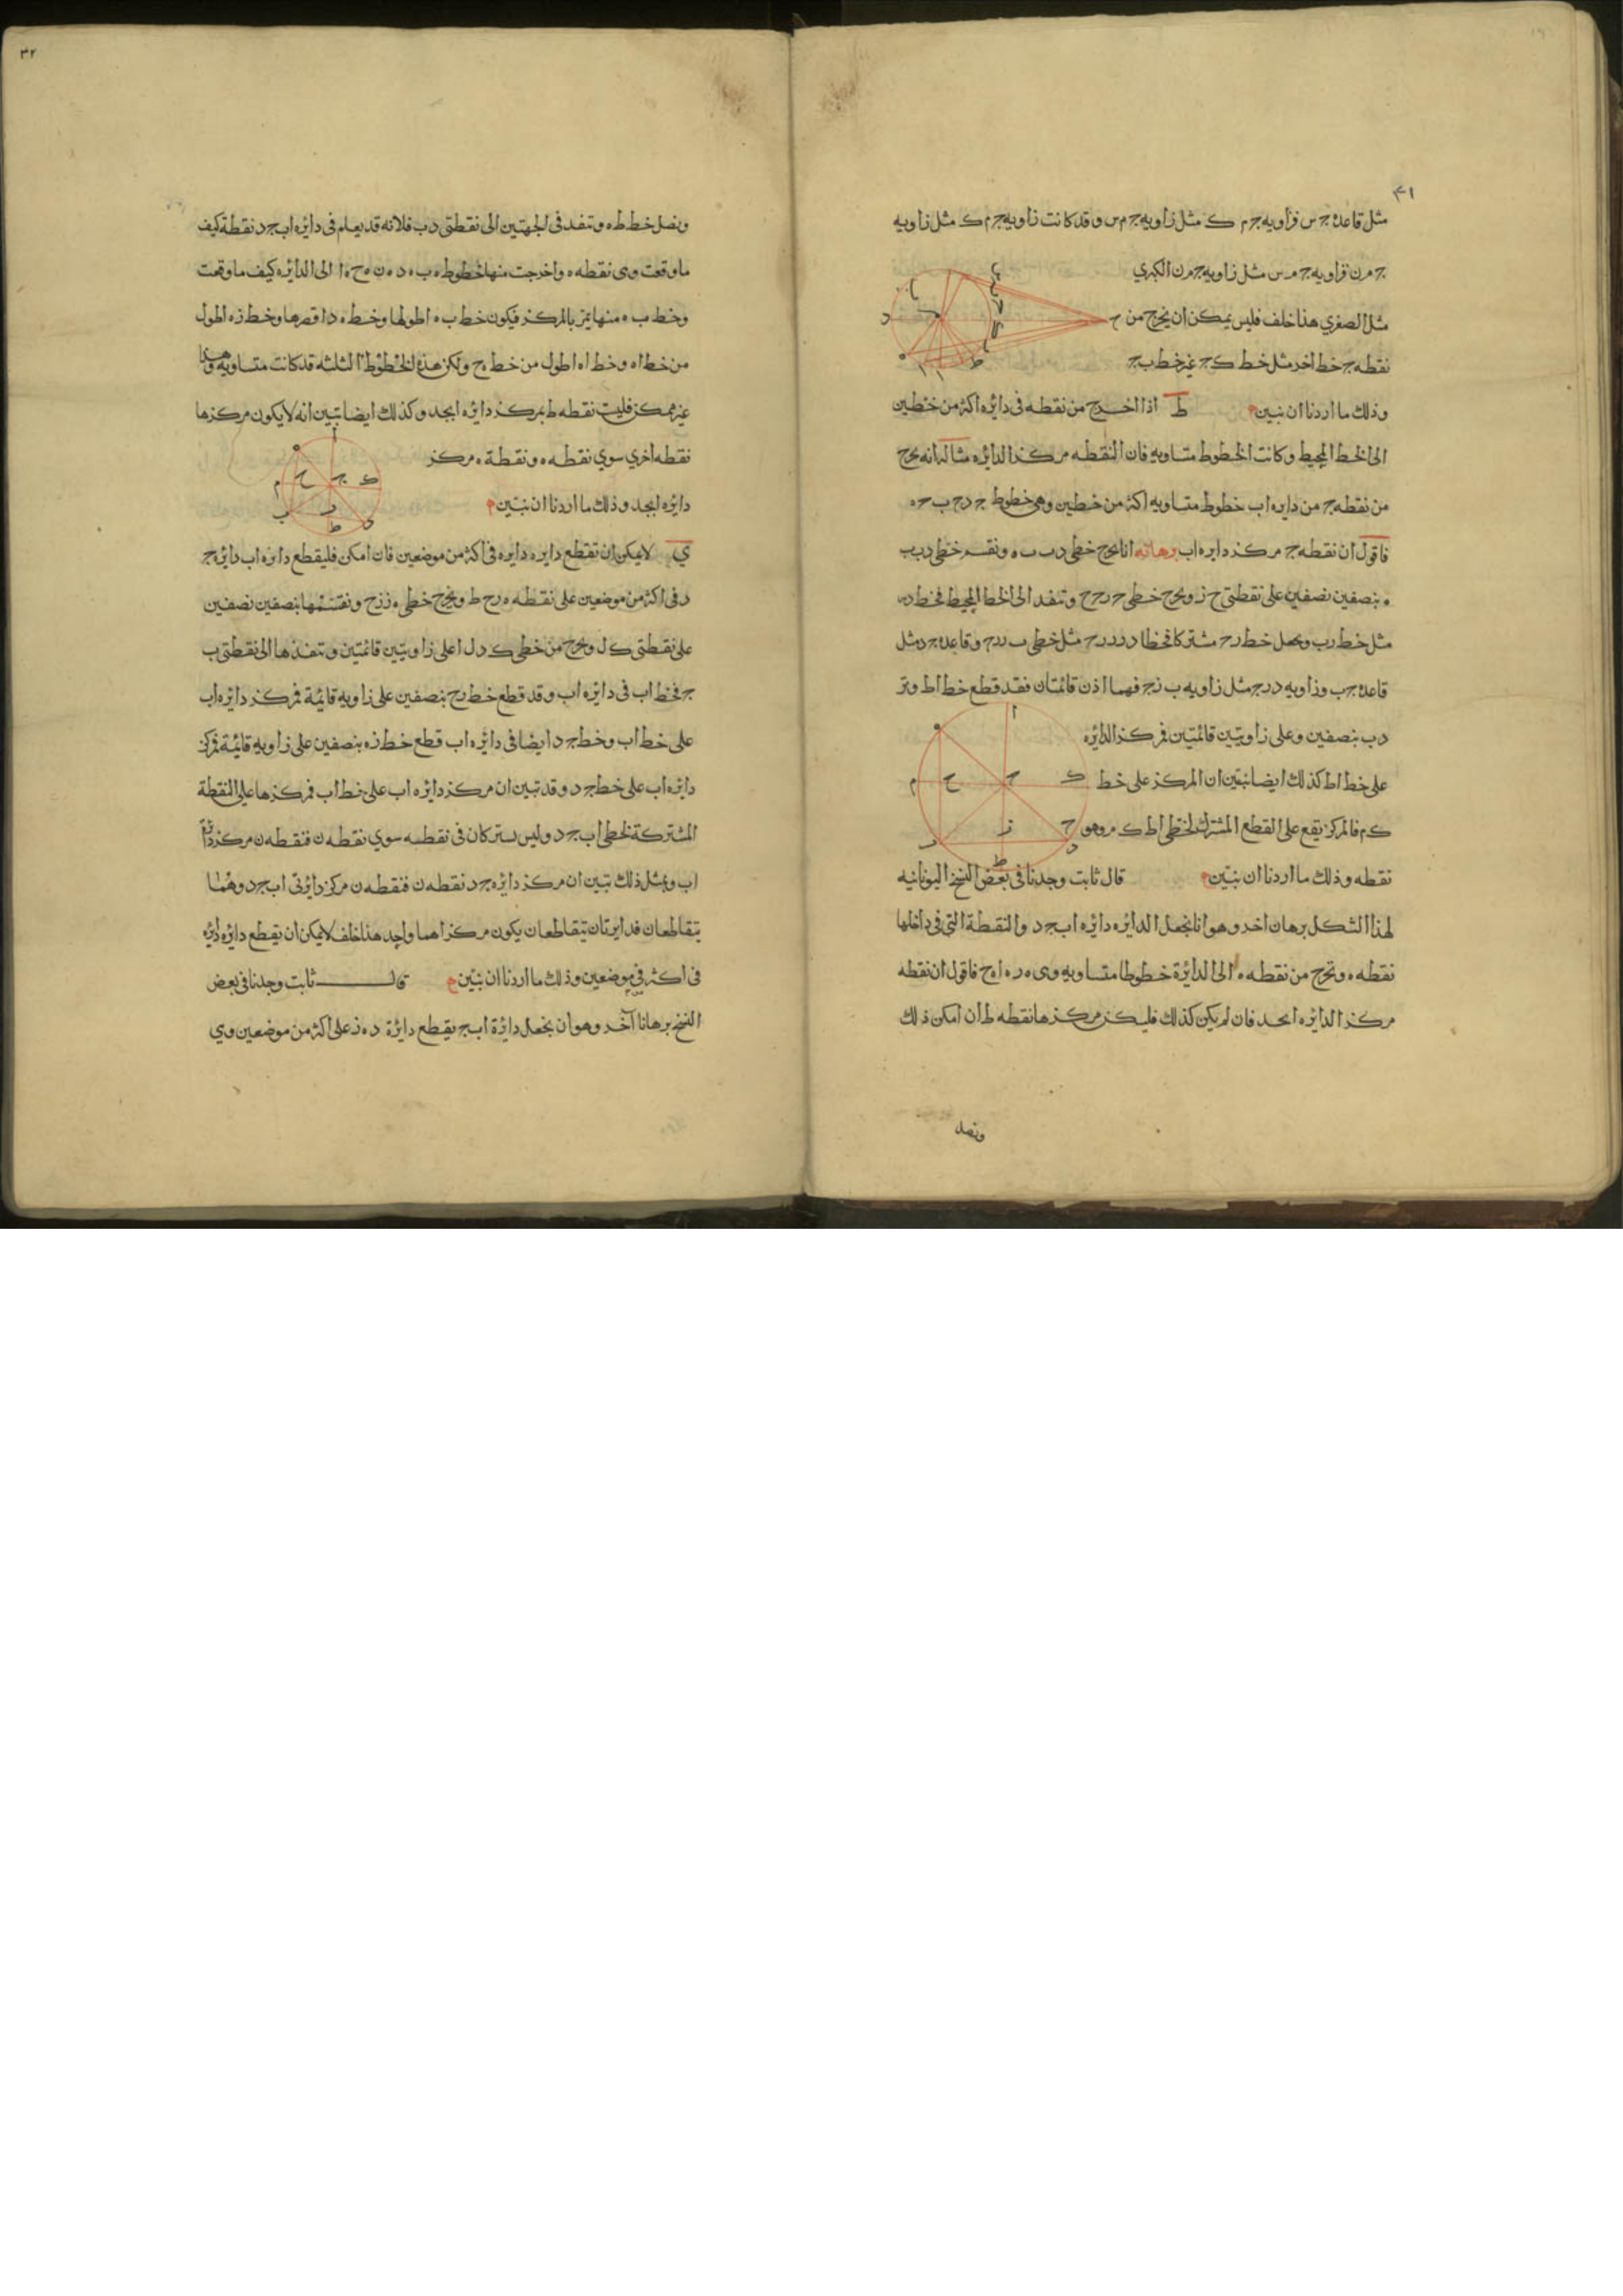 ٤١
مثل قاعدة ج س فزاويه ج م ك مثل زاويه ج م س وقد كانت زاويه ج م ك مثل زاويه
ج م ن فزاويه ج م س مثل زاويه ج م ن الكبري
مثل الصغري هذا خلف فليس يمكن ان يخرج من
نقطه ج خط اخر مثل خط ك ج غير خط ب ج
وذلك ما اردنا ان نبين ط اذا اخرج من نقطه في دائره اكثر من خطين
الى الخط المحيط وكانت الخطوط متساويه فان النقطه مركز الدائره مثاله انه يخرج
من نقطه ج من دايره اب خطوط متساويه اكثر من خطين وهي خطوط ج د ج ب ج ه
فاقول ان نقطه ج مركز دايره اب برهانه انا نخرج خطى د ب ب ه ونقسم خطى د ب ب
ه بنصفين نصفين على نقطتى ح ز ونخرج خطى ج ز ج ح وتنفد الى الخط المحيط فخط د ز
مثل خط ز ب ونجعل خط ز ج مشتركا فخطا د ز ز ج مثل خطى ب ز ز ج وقاعدة ج د مثل
قاعدة ج ب وزاويه د ز ج مثل زاويه ب ز ج فهما اذن قائمتان فقد قطع خط ا ط وتر
د ب بنصفين وعلى زاويتين قائمتين فمركز الدائره
على خط اط كذلك ايضا نبين ان المركز على خط
ك م فالمركز يقع على القطع المشترك لخطى اط ك م وهو
نقطه وذلك ما اردنا ان نبين قال ثابت وجدنا في بعض النسخ اليونانيه
لهذا الشكل برهان اخر وهو انا نجعل الدائره دائره اب ج د والنقطة التي في داخلها
نقطه ه ونخرج من نقطه ه الى الدائرة خطوطا متساويه وهى ه ز ه ا ه ج فاقول ان نقطه
مركز الدائره ابجد فان لم يكن كذلك فليكن مركزها نقطه ط ان امكن ذلك
ونصل
٣٢
ونصل خط ط ه وتنفد في الجهتين الى نقطتى د ب فلانه قد يعلم في دائره اب ج د نقطة كيف
ما وقعت وهى نقطه ه واخرجت منها خطوط ه ب ه د ه ن ه ح ه ا الى الدائره كيف ما وقعت
وخط ب ه منها يمر بالمركز فيكون خط ب ه اطولها وخط ه د اقصرها وخط ز ه اطول
من خط ا ه وخط ا ه اطول من خط ه ج ولكن هذه الخطوط الثلثه قد كانت متساويه وهذا
غير ممكن فليست نقطه ط بمركز دائره ابجد وكذلك ايضا نبين انه لا يكون مركزها
نقطه اخري سوي نقطه ه ونقطة ه مركز
دائره ابجد وذلك ما اردنا ان نبين
ي لا يمكن ان تقطع دايره دايره في اكثر من موضعين فان امكن فليقطع دايره اب دائره ج
د في اكثر من موضعين على نقطه ه ز ح ط ونخرج خطى ه ز ز ح ونقسمها بنصفين نصفين
على نقطتى ك ل ونخرج من خطى ك د ل ا على زاويتين قائمتين وتنفذها الى نقطتى ب
ج فخط اب في دايره اب وقد قطع خط ز ح بنصفين على زاويه قائمة فمركز دايره اب
على خط اب وخط ج د ايضا في دائره اب قطع خط ز ه بنصفين على زاويه قائمة فمركز
دايره اب على خط ج د وقد تبين ان مركز دايره اب على خط اب فمركزها على النقطة
المشتركة لخطى اب ج د وليس يشتركان في نقطه سوي نقطه ن فنقطه ن مركز دائرة
اب وبمثل ذلك نبين ان مركز دائره ج د نقطه ن فنقطه ن مركز دايرتى اب ج د وهما
يتقاطعان فدايرتان يتقاطعان يكون مركزاهما واحد هذا خلف لا يمكن ان يقطع دائره دائره
في اكثر في موضعين وذلك ما اردنا ان نبين قال ثابت وجدنا في بعض
النسخ برهانا آخر وهو ان نجعل دائرة اب ج يقطع دائرة د ه ز على اكثر من موضعين وهي